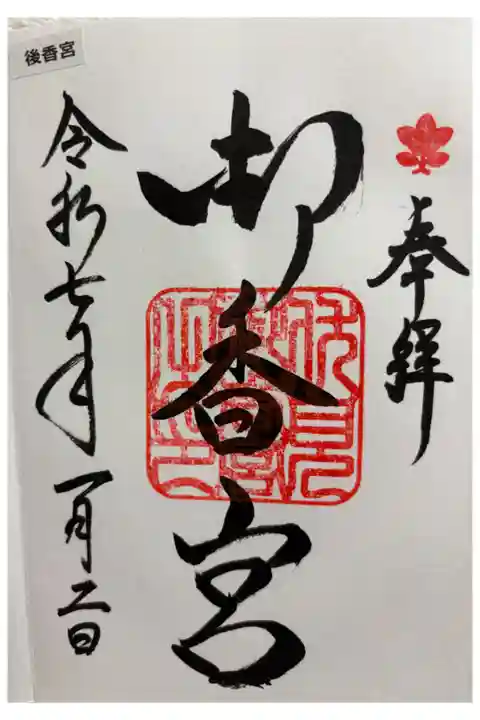 奉拝
御香宮
令和七年一月二日
後香宮